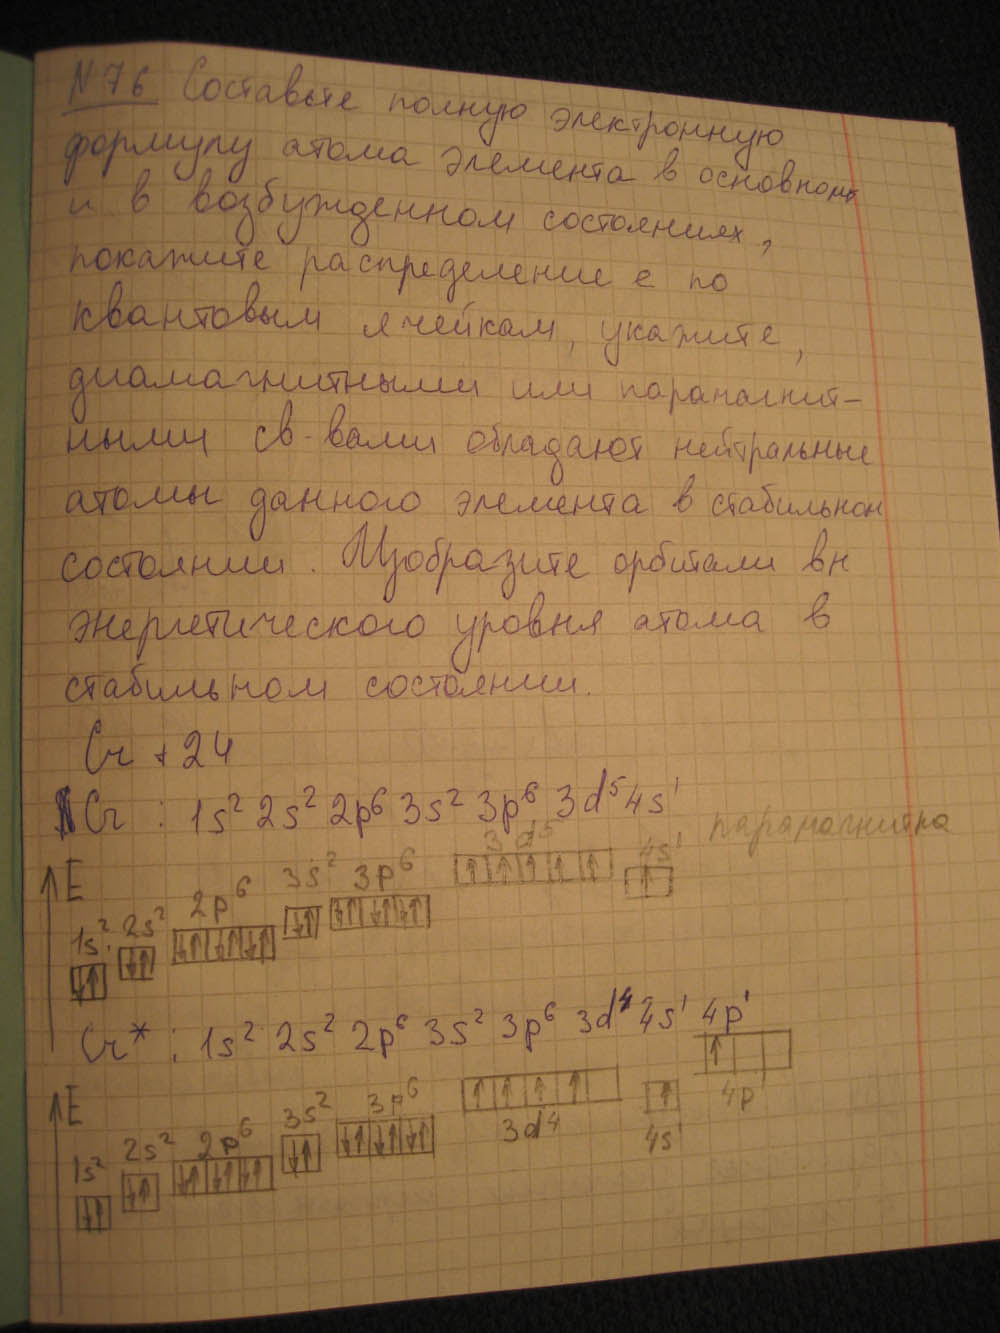 N 76 Составьте полную электронную
формулу атома элемента в основном
и в возбужденном состояниях,
покажите распределение е по
квантовым ячейкам, укажите,
диамагнитными или парамагнит-
ными св-вами обладают нейтральные
атомы данного элемента в стабильном
состоянии. Изобразите орбитали вн
энергетического уровня атома в
стабильном состоянии.
Cr +24
Cr : 1s² 2s² 2p⁶ 3s² 3p⁶ 3d⁵ 4s¹
парамагнитна
E 1s² 2s² 2p⁶ 3s² 3p⁶ 3d⁵ 4s¹
Cr* : 1s² 2s² 2p⁶ 3s² 3p⁶ 3d⁴ 4s¹ 4p¹
E 1s² 2s² 2p⁶ 3s² 3p⁶ 3d⁴ 4s¹ 4p¹